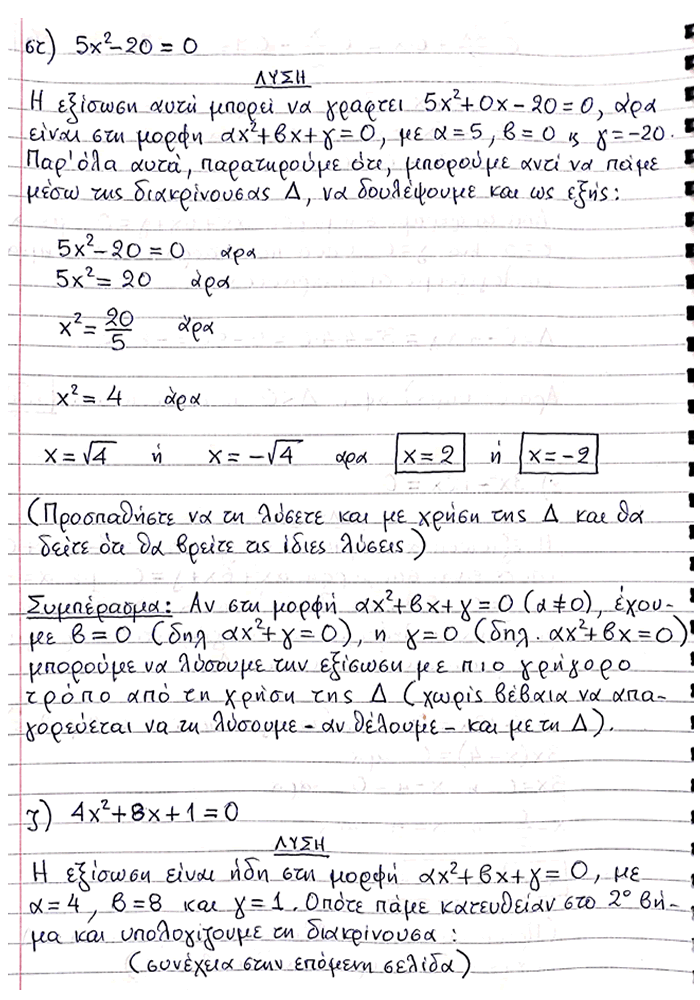 στ) 5x²-20=0
ΛΥΣΗ
Η εξίσωση αυτή μπορεί να γραφτεί 5x²+0x-20=0, άρα
είναι στη μορφή αx²+βx+γ=0, με α=5, β=0 ϗ γ=-20.
Παρ'όλα αυτά, παρατηρούμε ότι, μπορούμε αντί να πάμε
μέσω της διακρίνουσας Δ, να δουλέψουμε και ως εξής:
5x²-20=0 άρα
5x²=20 άρα
x²=20/5 άρα
x²=4 άρα
x=√4 ή x=-√4 αρα x=2 ή x=-2
(Προσπαθήστε να τη λύσετε και με χρήση της Δ και θα
δείτε ότι θα βρείτε τις ίδιες λύσεις)
Συμπέρασμα: Αν στη μορφή αx²+βx+γ=0 (α≠0), έχου-
με β=0 (δηλ αx²+γ=0), η γ=0 (δηλ. αx²+βx=0)
μπορούμε να λύσουμε την εξίσωση με πιο γρήγορο
τρόπο από τη χρήση της Δ (χωρίς βέβαια να απα-
γορεύεται να τη λύσουμε - αν θέλουμε - και με τη Δ).
ζ) 4x²+8x+1=0
ΛΥΣΗ
Η εξίσωση είναι ήδη στη μορφή αx²+βx+γ=0, με
α=4, β=8 και γ=1. Οπότε πάμε κατευθείαν στο 2° βή-
μα και υπολογίζουμε τη διακρίνουσα:
(συνέχεια στην επόμενη σελίδα)